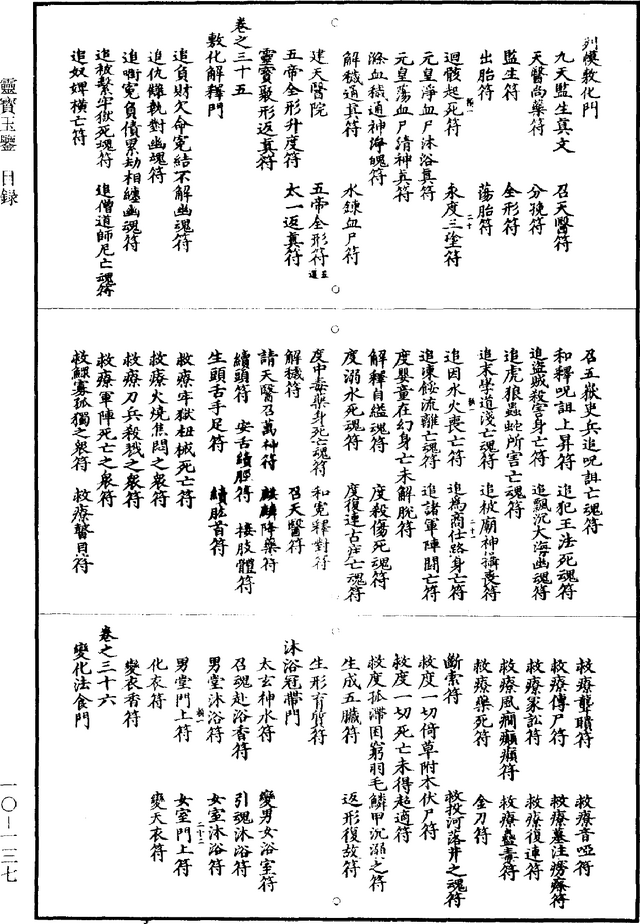 靈寶玉鑒 目録
一〇—一三七
列模敎化門
九天監生真文 召天醫符
天醫尚藥符 分㝃符
監生符 全形符
出胎符 蕩胎符
迴骸起死符 永度三塗符
元皇淨血尸沐浴真符
元皇蕩血尸精神真符
滌血穢通神海魄符
解穢通真符 水鍊血尸符
建天醫院 五帝全形符
五帝全形升度符 太一返真符
靈寶聚形返真符
卷之三十五
敷化解釋門
追負財欠命寃結不解幽魂符
追仇讎執對幽魂符
追啣寃負債累劫相纏幽魂符
追被繫牢獄死魂符 追僧道師尼亡魂符
追奴婢橫亡符
召五嶽吏兵追呪詛亡魂符
和釋呪詛上昇符 追犯王法死魂符
追盜賊殺害身亡符 追飄沉大海幽魂符
追虎狼蟲蛇所害亡魂符
追未坐道淺亡魂符 追被廟神禍喪符
追因水火喪亡符 追爲商仕路身亡符
追凍餒流離亡魂符 追諸軍陣鬪亡符
度嬰童在幻身亡未解脫符
解釋自縊魂符 度殺傷死魂符
度溺水死魂符 度復連古疰亡魂符
度中毒藥身死亡魂符
解穢符 和寃釋對符
請天醫召萬神符 召天醫符
續頭符 安舌續脛符 麒麟降藥符
生頭舌手足符 接肢體符
續脛首符
救療牢獄杻械死亡符
救療火燒焦悶之衆符
救療刀兵殺戮之衆符
救療軍陣死亡之衆符
救鰥寡孤獨之衆符 救療瞽目符
救療聾聵符 救療音啞符
救療傳尸符 救療墓注癆瘵符
救療冢訟符 救療復連符
救療風癇癲癩符 救療蠱毒符
救療藥死符 金刀符
斷索符 救投河落井之魂符
救度一切倚草附木伏尸符
救度一切死亡未得超適符
救度孤滯困窮羽毛鱗甲沉溺之符
生成五臟符 返形復故符
生形育質符
沐浴冠帶門
太玄神水符 變男女浴室符
召魂赴浴香符 引魂沐浴符
男堂沐浴符 女室沐浴符
男堂門上符 女室門上符
化衣符 變天衣符
變衣香符
卷之三十六
變化法食門